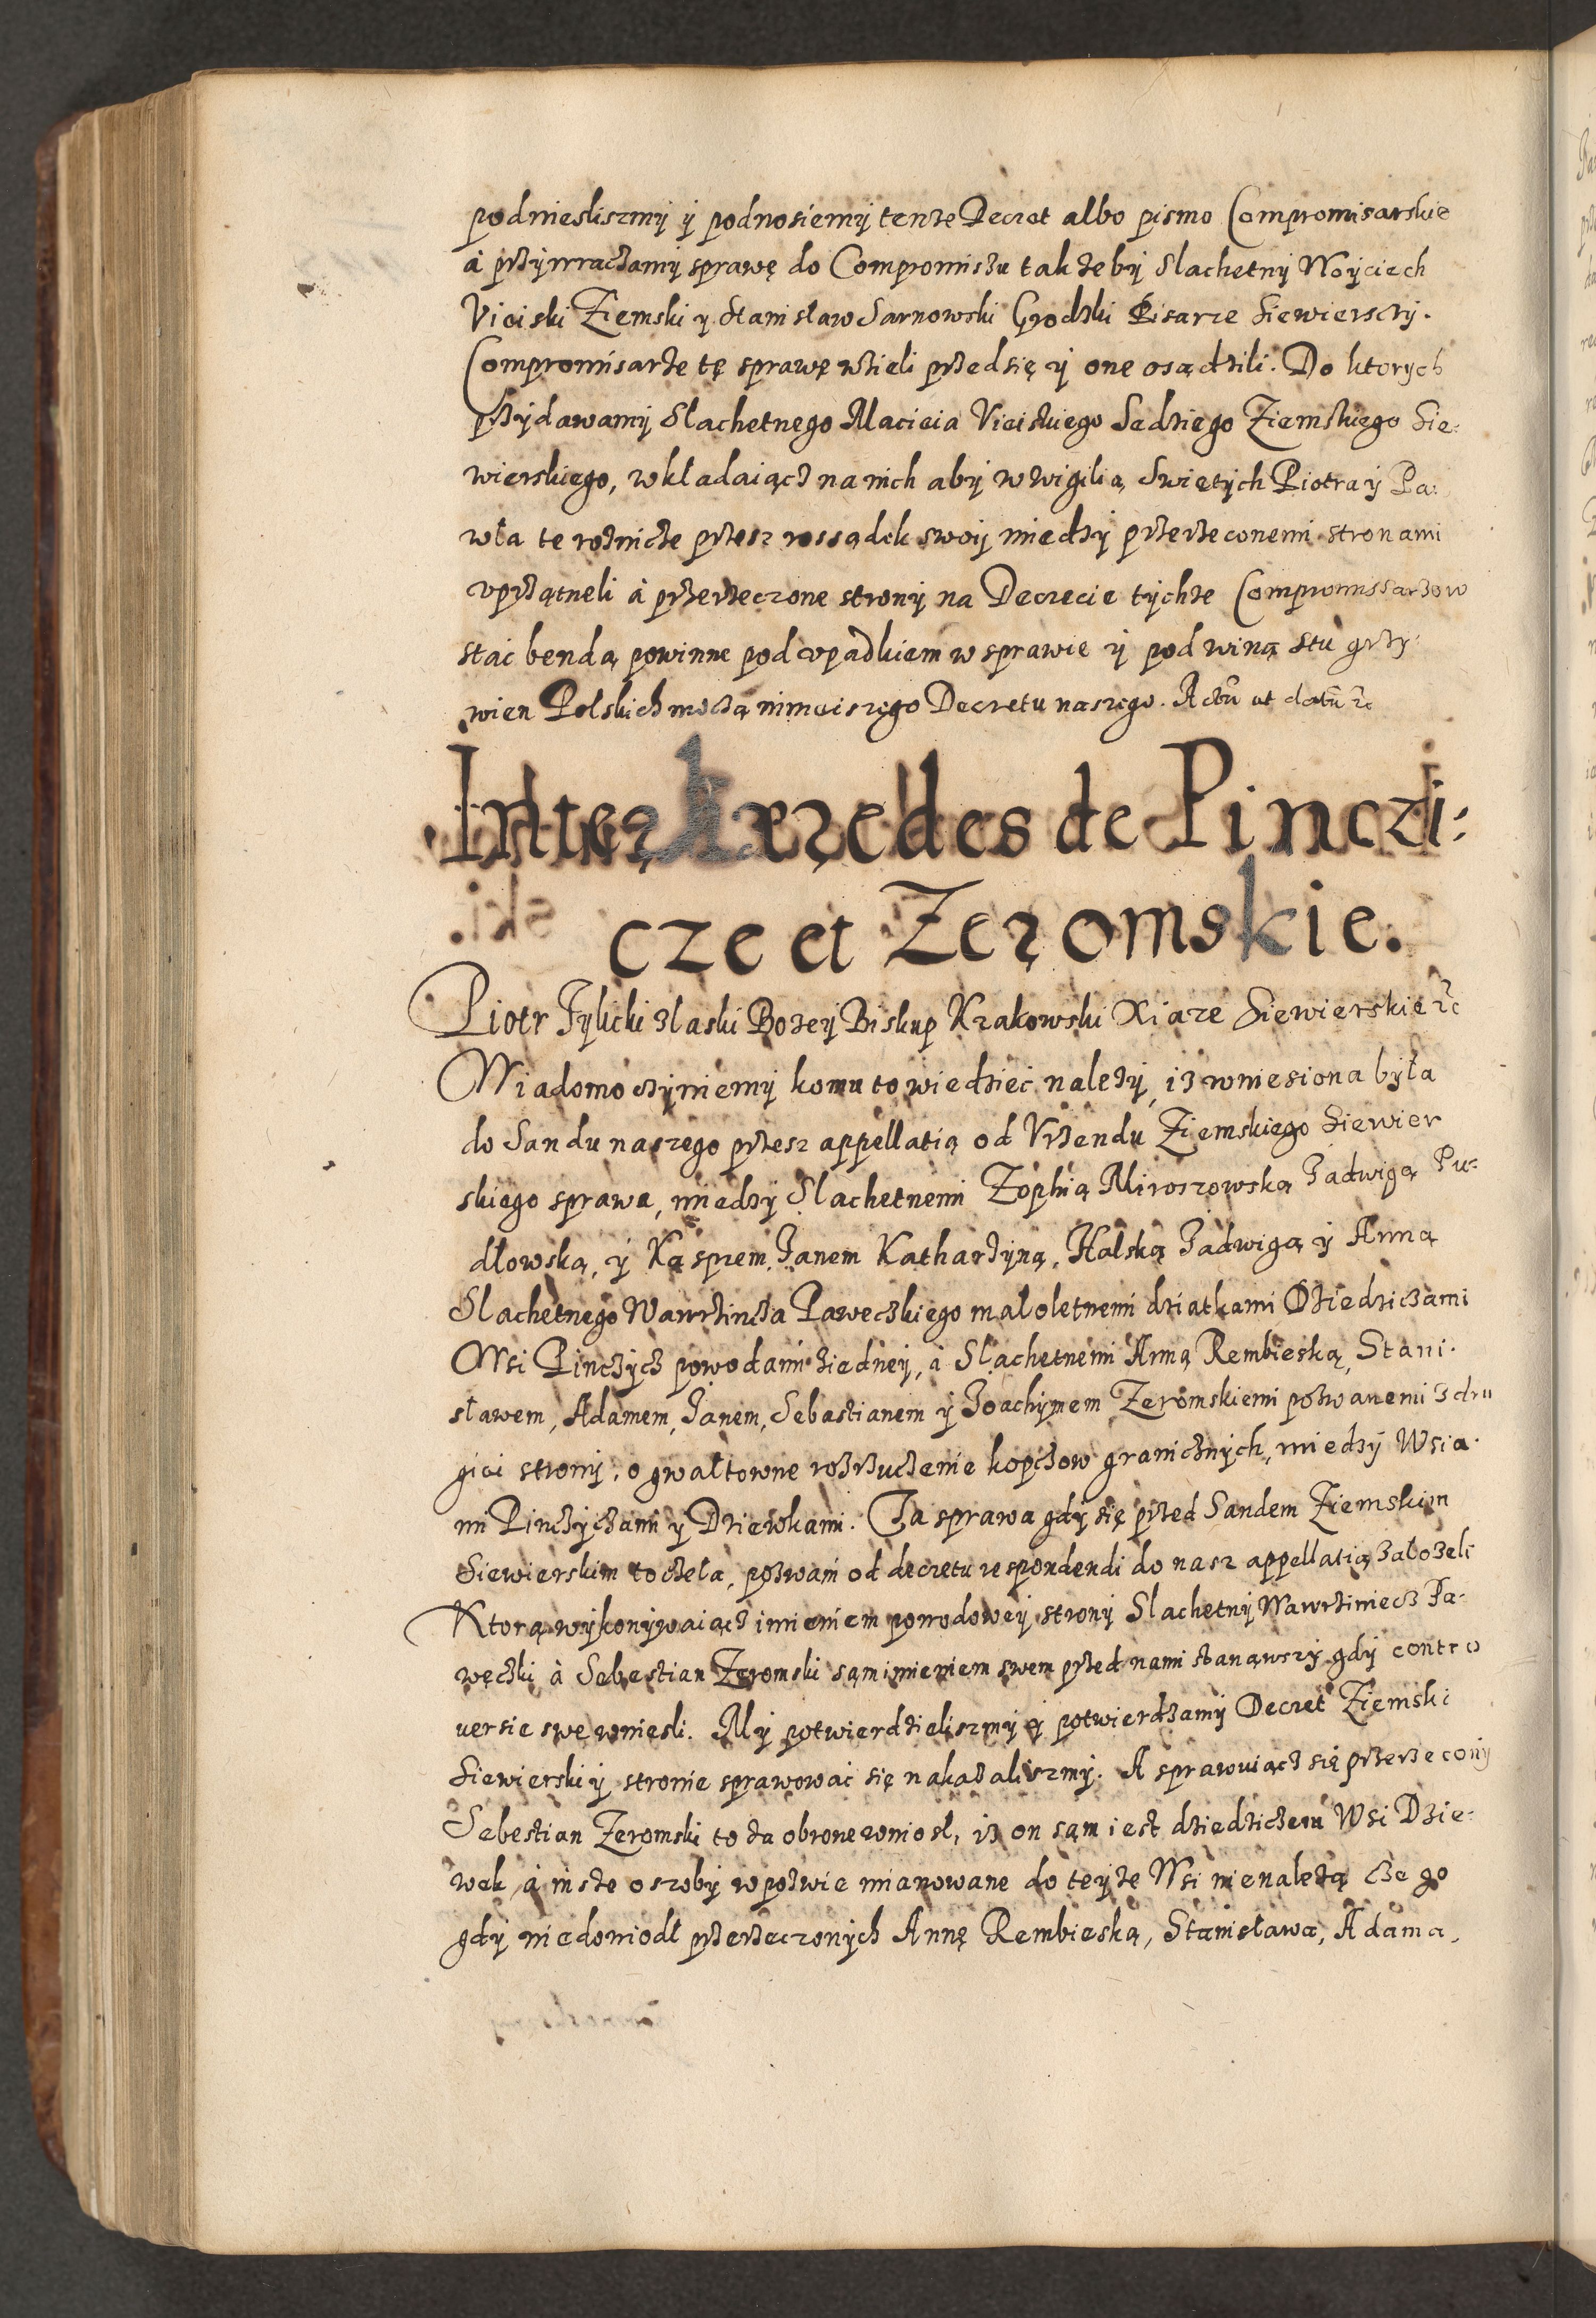 podniesliszmy y podnosiemy tenze Decret albo pismo Compromisarskie
á przywraczamy sprawę do Compromiszu tak zeby Slachetny Woyciech
Vieiski Ziemski y Stanisław Sarnowski Grodzki Pisarze Siewierszy.
Compromisarze tę sprawę wzieli przed się y onę osądzili. Do ktorych
przydawamy Slachetnego Macieia Vieiskiego Sedziego Ziemskiego Sie:
wierskiego, wkladaiącz na nich aby w wigilią Swiętych Piotra y Pa:
wła te roznicze przesz rossądek swoy miedzy przerzeconemi stronami
vprzątneli á przerzeczone strony na Decrecie tychze Compromissarzow
stac bendą powinne pod vpadkiem w sprawie y pod winą stu grzy:
wien Polskich moczą ninieiszego Decretu naszego. Actũ ut datũ &c
Inter hæredes de Pinczi:
cze et Zeromskie.
Piotr Tylicki z łaski Bozey Biskup Krakowski Xiaze Siewierskie &c
Wiadomo czyniemy komu to wiedziec nalezy, iz wniesiona była
do Sandu naszego przesz appellatią od Vrzendu Ziemskiego Siewier
skiego sprawa, miedzy Slachetnemi Zophią Miroszowską Jadwigą Pu:
dłowską, y Kasprem, Janem Katharzyną, Halską Jadwigą y Anną
Slachetnego Wawrzincza Paweczkiego maloletnemi dziatkami Dziedziczami
Wsi Pinczycz powodami z iedney, á Slachetnemi Anną Rembieską, Stani.
sławem, Adamem, Janem, Sebastianem y Joachymem Zeromskiemi pozwanemi z dru
giei strony, o gwałtowne rozrzuczenie kopczow granicznych, miedzy Wsia.
mi Pinczyczami y Dziewkami. Ta sprawa gdy się przed Sandem Ziemskim
Siewierskim toczela, pozwani od decretu respondendi do nasz appellatią załozeli
Ktorą wykonywaiącz imieniem powodowey strony Slachetny Wawrziniecz Pa-
węczki à Sebestian Zeromski sąm imieniem swem przed nami stanąwszy gdy contro
uersie swę wniesli. My potwierdzieliszmy y potwierdzamy Decret Ziemski
Siewierski y stronie sprawowac się nakazaliszmy. A sprawuiącz się przerzecony
Sebestian Zeromski to za obronę wniosł, iz on sąm iest dziedziczem Wsi Dzie:
wek, á insze oszoby w pozwie mianowane do teyze Wsi nienalezą czego
gdy niedowiodł przerzeczonych Annę Rembieską, Stanisława, Adama,